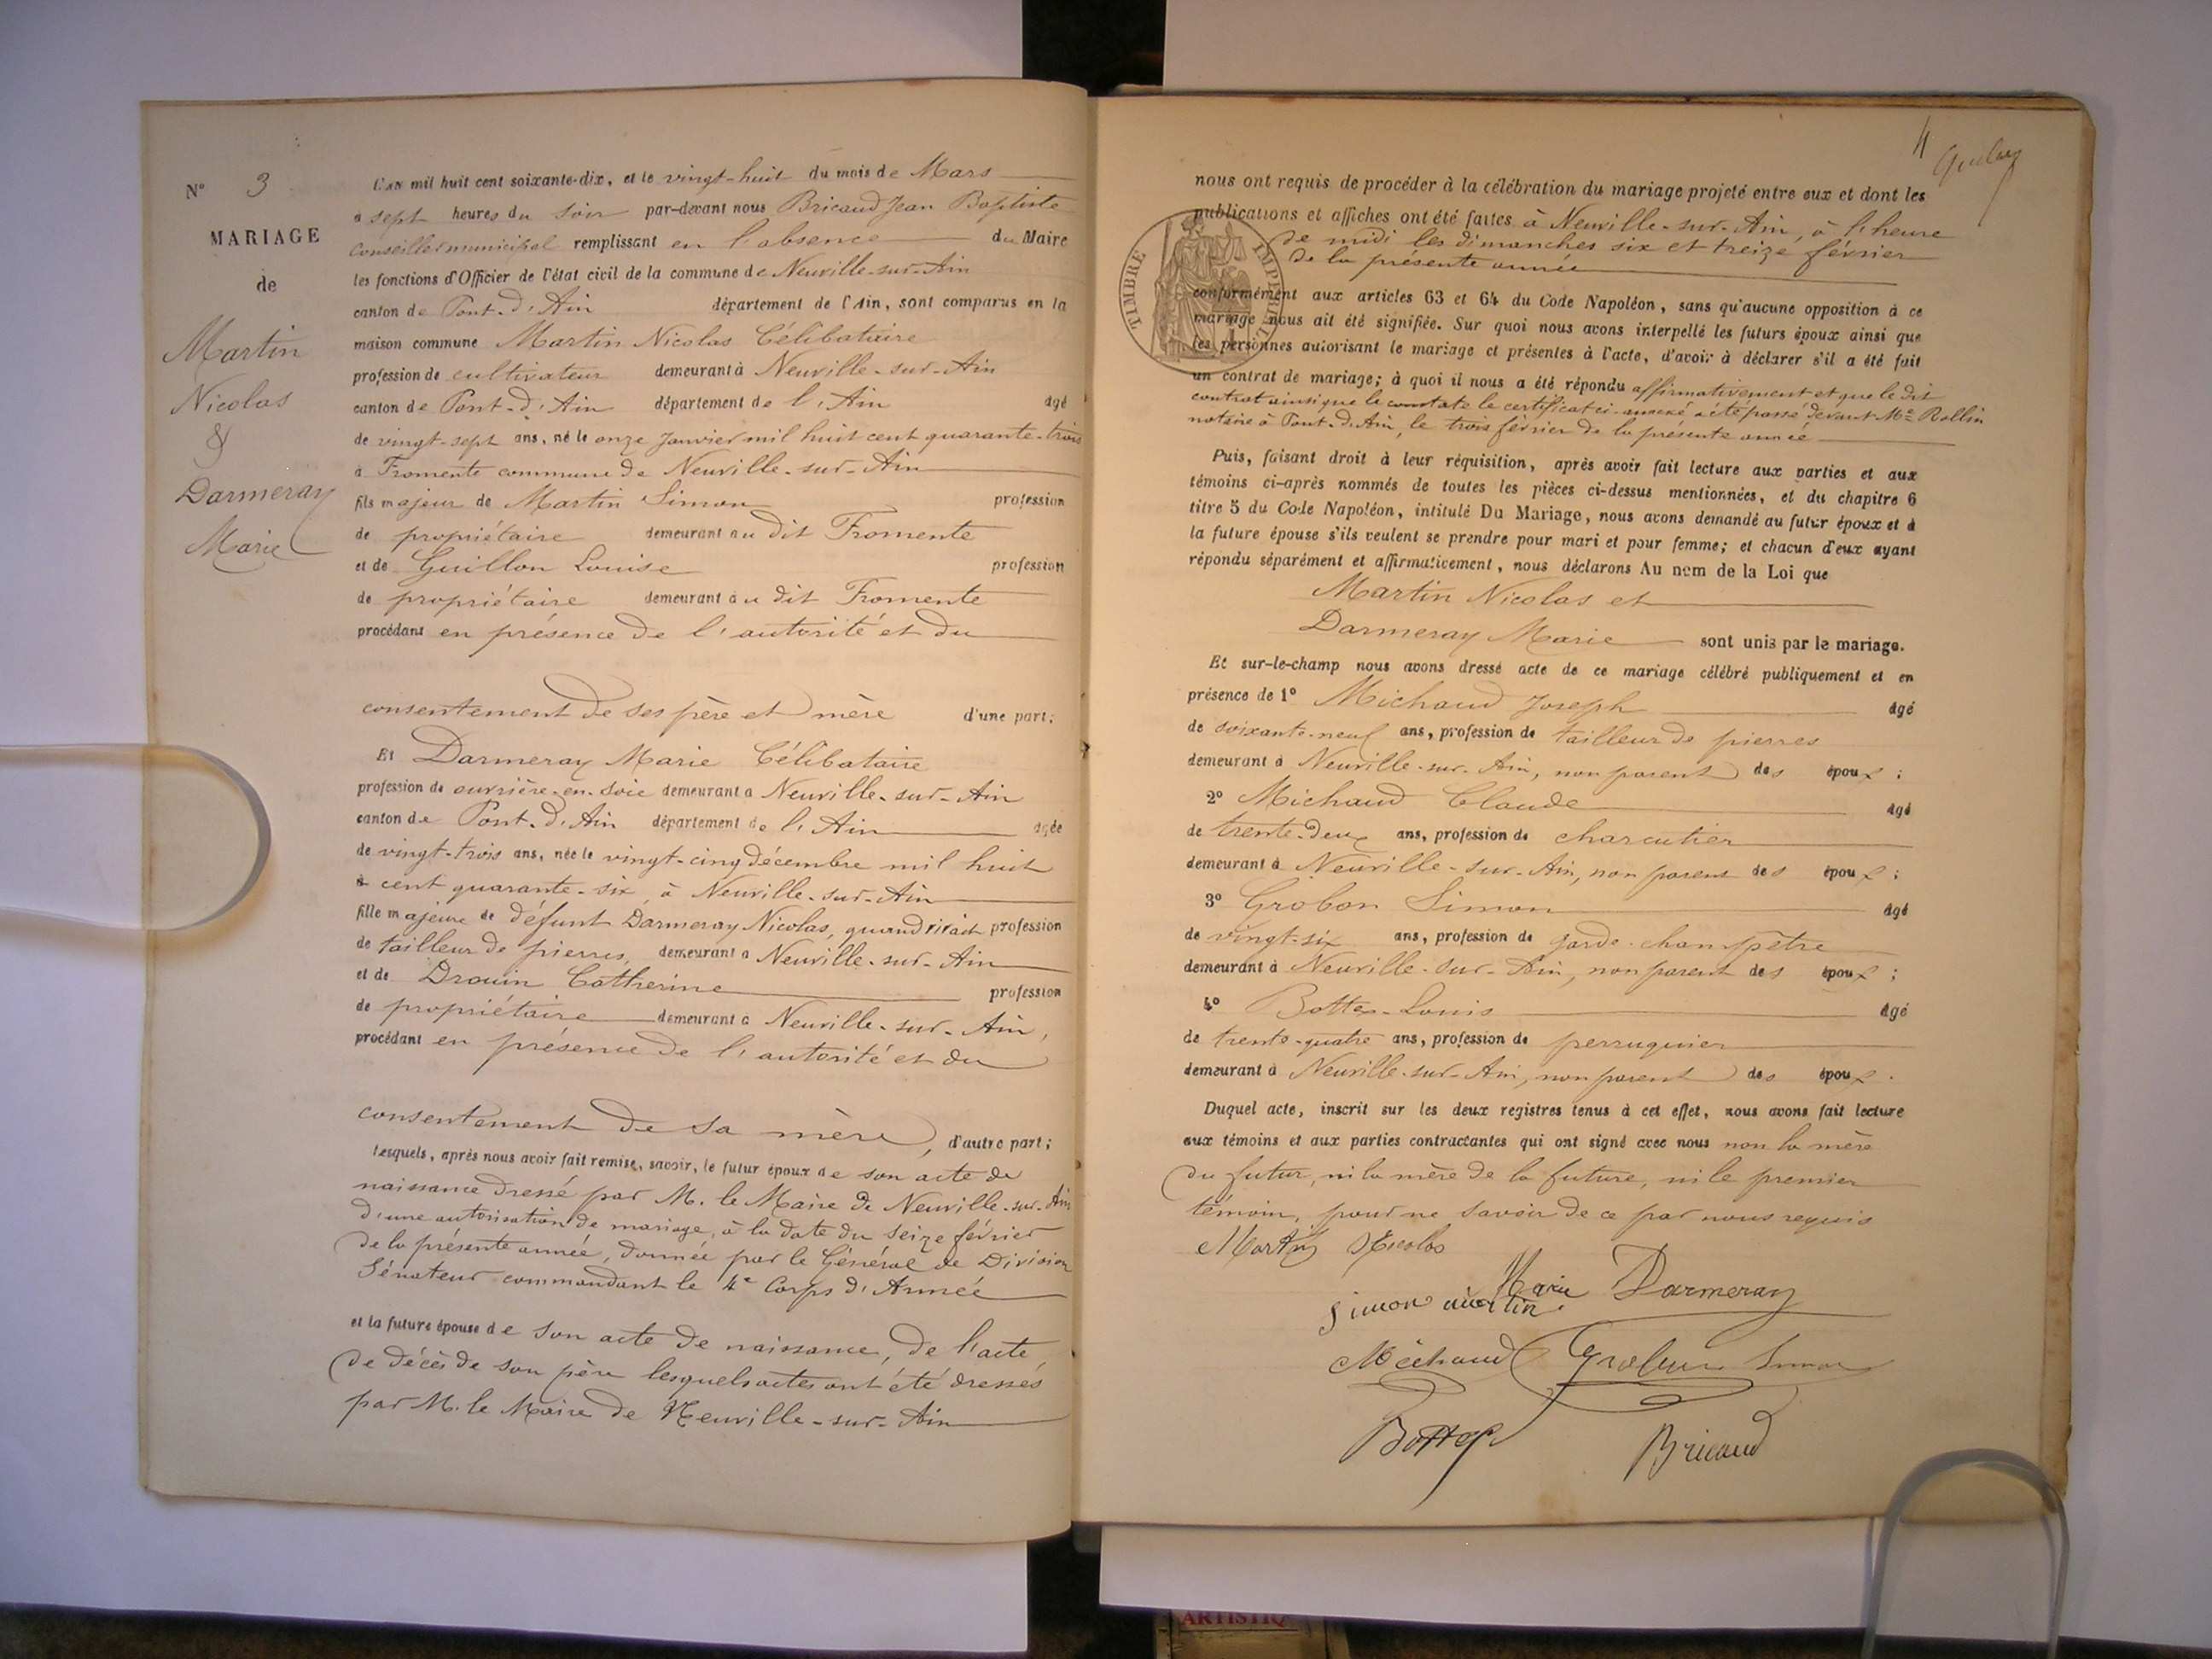 N° 3
MARIAGE
de
Martin
Nicolas
&
Darmeray
Marie
L'an mil huit cent soixante-dix, et le vingt-huit du mois de Mars
à sept heures du soir par-devant nous Bricaud Jean Baptiste
Conseiller municipal remplissant en l'absence du Maire
les fonctions d'Officier de l'état civil de la commune de Neuville-sur-Ain
canton de Pont-d'Ain département de l'Ain, sont comparus en la
maison commune Martin Nicolas Célibataire
profession de cultivateur demeurant à Neuville-sur-Ain
canton de Pont-d'Ain département de l'Ain âgé
de vingt-sept ans, né le onze Janvier mil huit cent quarante-trois
à Fromente commune de Neuville-sur-Ain
fils majeur de Martin Simon profession
de propriétaire demeurant au dit Fromente
et de Guillon Louise profession
de propriétaire demeurant au dit Fromente
procédant en présence de l'autorité et du
consentement de ses père et mère d'une part;
Et Darmeray Marie Célibataire
profession de ouvrière-en-soie demeurant à Neuville-sur-Ain
canton de Pont-d'Ain département de l'Ain âgée
de vingt-trois ans, née le vingt-cinq décembre mil huit
à cent quarante-six, à Neuville-sur-Ain
fille majeure de défunt Darmeray Nicolas, quand vivait profession
de tailleur de pierres, demeurant à Neuville-sur-Ain
et de Drouin Catherine profession
de propriétaire demeurant à Neuville-sur-Ain,
procédant en présence de l'autorité et du
consentement de sa mère, d'autre part;
Lesquels, après nous avoir fait remise, savoir, le futur époux de son acte de
naissance dressé par M. le Maire de Neuville-sur-Ain
d'une autorisation de mariage, à la date du seize février
de la présente année, donnée par le Général de Division
Sénateur commandant le 4e Corps d'Armée
et la future épouse de son acte de naissance, de l'acte
de décès de son père lesquels actes ont été dressés
par M. le Maire de Neuville-sur-Ain
4
nous ont requis de procéder à la célébration du mariage projeté entre eux et dont les
publications et affiches ont été faites à Neuville-sur-Ain, à l'heure
de midi les dimanches six et treize février
de la présente année
TIMBRE IMPERIAL
conformément aux articles 63 et 64 du Code Napoléon, sans qu'aucune opposition à ce
mariage nous ait été signifiée. Sur quoi nous avons interpellé les futurs époux ainsi que
les personnes autorisant le mariage et présentes à l'acte, d'avoir à déclarer s'il a été fait
un contrat de mariage; à quoi il nous a été répondu affirmativement et que le dit
contrat ainsi que le constate le certificat ci-annexé a été passé devant Me Rollin
notaire à Pont-d'Ain, le trois février de la présente année
Puis, faisant droit à leur réquisition, après avoir fait lecture aux parties et aux
témoins ci-après nommés de toutes les pièces ci-dessus mentionnées, et du chapitre 6
titre 5 du Code Napoléon, intitulé Du Mariage, nous avons demandé au futur époux et à
la future épouse s'ils veulent se prendre pour mari et pour femme; et chacun d'eux ayant
répondu séparément et affirmativement, nous déclarons Au nom de la Loi que
Martin Nicolas et
Darmeray Marie sont unis par le mariage.
Et sur-le-champ nous avons dressé acte de ce mariage célébré publiquement et en
présence de 1° Michaud Joseph âgé
de soixante-neuf ans, profession de tailleur de pierres
demeurant à Neuville-sur-Ain, non parent des époux;
2° Michaud Claude âgé
de trente-deux ans, profession de charcutier
demeurant à Neuville-sur-Ain, non parent des époux;
3° Grobon Simon âgé
de vingt-six ans, profession de garde-champêtre
demeurant à Neuville-sur-Ain, non parent des époux;
4° Bottex Louis âgé
de trente-quatre ans, profession de perruquier
demeurant à Neuville-sur-Ain, non parent des époux.
Duquel acte, inscrit sur les deux registres tenus à cet effet, nous avons fait lecture
aux témoins et aux parties contractantes qui ont signé avec nous non la mère
du futur, ni la mère de la future, ni le premier
témoin, pour ne savoir de ce par nous requis
Martin Nicolas
Marie Darmeray
Simon martin
Michaud Grobon Simon
Bottex Bricaud
ARTISTIQ